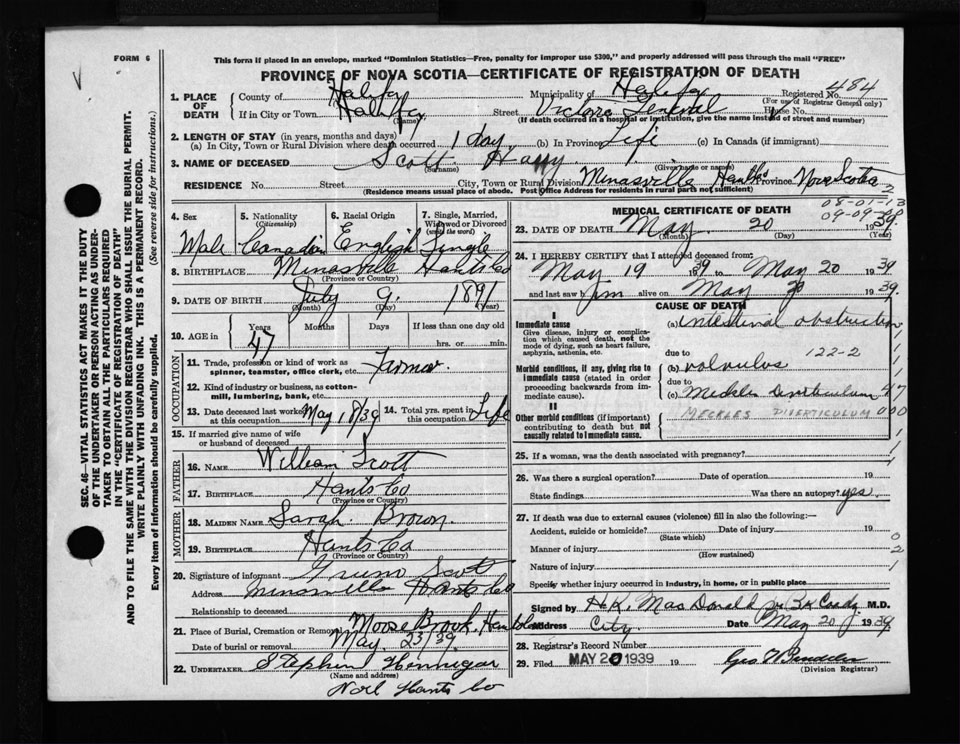 FORM 6
This form if placed in an envelope, marked "Dominion Statistics—Free, penalty for improper use $300," and properly addressed will pass through the mail "FREE"
PROVINCE OF NOVA SCOTIA—CERTIFICATE OF REGISTRATION OF DEATH
SEC. 46—VITAL STATISTICS ACT MAKES IT THE DUTY
OF THE UNDERTAKER OR PERSON ACTING AS UNDER-
TAKER TO OBTAIN ALL THE PARTICULARS REQUIRED
IN THE "CERTIFICATE OF REGISTRATION OF DEATH"
AND TO FILE THE SAME WITH THE DIVISION REGISTRAR WHO SHALL ISSUE THE BURIAL PERMIT.
WRITE PLAINLY WITH UNFADING INK. THIS IS A PERMANENT RECORD.
Every item of information should be carefully supplied. (See reverse side for instructions.)
1. PLACE OF DEATH County of Halifax Municipality of Halifax Registered No. 484
(For use of Registrar General only)
If in City or Town Halifax (Name) Street Victoria General House No.
(If death occurred in a hospital or institution, give the name instead of street and number)
2. LENGTH OF STAY (in years, months and days)
(a) In City, Town or Rural Division where death occurred 1 day (b) In Province Life (c) In Canada (if immigrant)
3. NAME OF DECEASED Scott Harry
(Surname) (Given name or names)
RESIDENCE No. Street City, Town or Rural Division Minasville Hants Province Nova Scotia
(Residence means usual place of abode. Post Office Address for residents in rural parts not sufficient)
2
4. Sex 5. Nationality (Citizenship) 6. Racial Origin 7. Single, Married, Widowed or Divorced (write the word)
Male Canadian English Single
8. BIRTHPLACE Minasville Hants Co
(Province or Country)
9. DATE OF BIRTH July 9 1891
(Month) (Day) (Year)
10. AGE in Years Months Days If less than one day old
47 hrs. or min.
OCCUPATION
11. Trade, profession or kind of work as spinner, teamster, office clerk, etc. Farmer
12. Kind of industry or business, as cotton-mill, lumbering, bank, etc.
13. Date deceased last worked at this occupation May 18/39 14. Total yrs. spent in this occupation Life
15. If married give name of wife or husband of deceased
FATHER
16. NAME William Scott
17. BIRTHPLACE Hants Co
(Province or Country)
MOTHER
18. MAIDEN NAME Sarah Brown
19. BIRTHPLACE Hants Co
(Province or Country)
20. Signature of informant Scott
Address Minasville Hants Co
Relationship to deceased
21. Place of Burial, Cremation or Removal Moose Brook, Hants Co
Date of burial or removal May 23/39
22. UNDERTAKER Stephen Hennigar
(Name and address)
Noel Hants Co
MEDICAL CERTIFICATE OF DEATH
08-01-13
09-09-39
23. DATE OF DEATH May 20 1939
(Month) (Day) (Year)
24. I HEREBY CERTIFY that I attended deceased from:
May 19 1939 to May 20 1939
and last saw him alive on May 20 1939
CAUSE OF DEATH
I
Immediate cause
Give disease, injury or complication which caused death, not the mode of dying, such as heart failure, asphyxia, asthenia, etc.
(a) Intestinal obstruction
due to 122-2
Morbid conditions, if any, giving rise to immediate cause (stated in order proceeding backwards from immediate cause).
(b) volvulus
due to
(c) Meckles Diverticulum 47
II
MECKLES DIVERTICULUM 000
Other morbid conditions (if important) contributing to death but not causally related to immediate cause.
25. If a woman, was the death associated with pregnancy?
26. Was there a surgical operation? Date of operation 19
State findings Was there an autopsy? yes.
27. If death was due to external causes (violence) fill in also the following:—
Accident, suicide or homicide? Date of injury 19
(State which)
0
Manner of injury 2
(How sustained)
Nature of injury 1
Specify whether injury occurred in industry, in home, or in public place
Signed by H.K. MacDonald M.D.
Address City. Date May 20 1939
28. Registrar's Record Number
29. Filed MAY 20 1939 19
(Division Registrar)